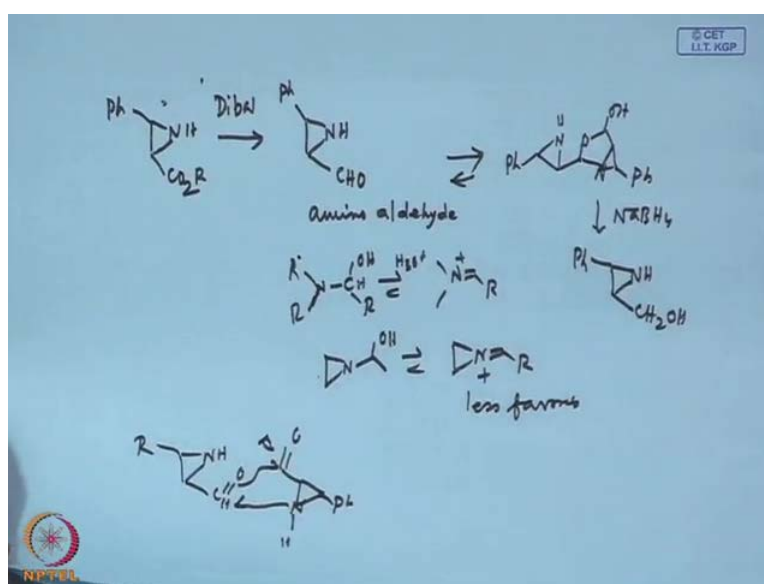 © CET
I.I.T. KGP
Ph NH CO2R
Dibal
Ph NH CHO
amino aldehyde
H N O OH Ph N Ph
NaBH4
Ph NH CH2OH
R N R CH OH R
H3O+
N + R
N OH
N + R
less favous
R NH C H O
O N H Ph
NPTEL